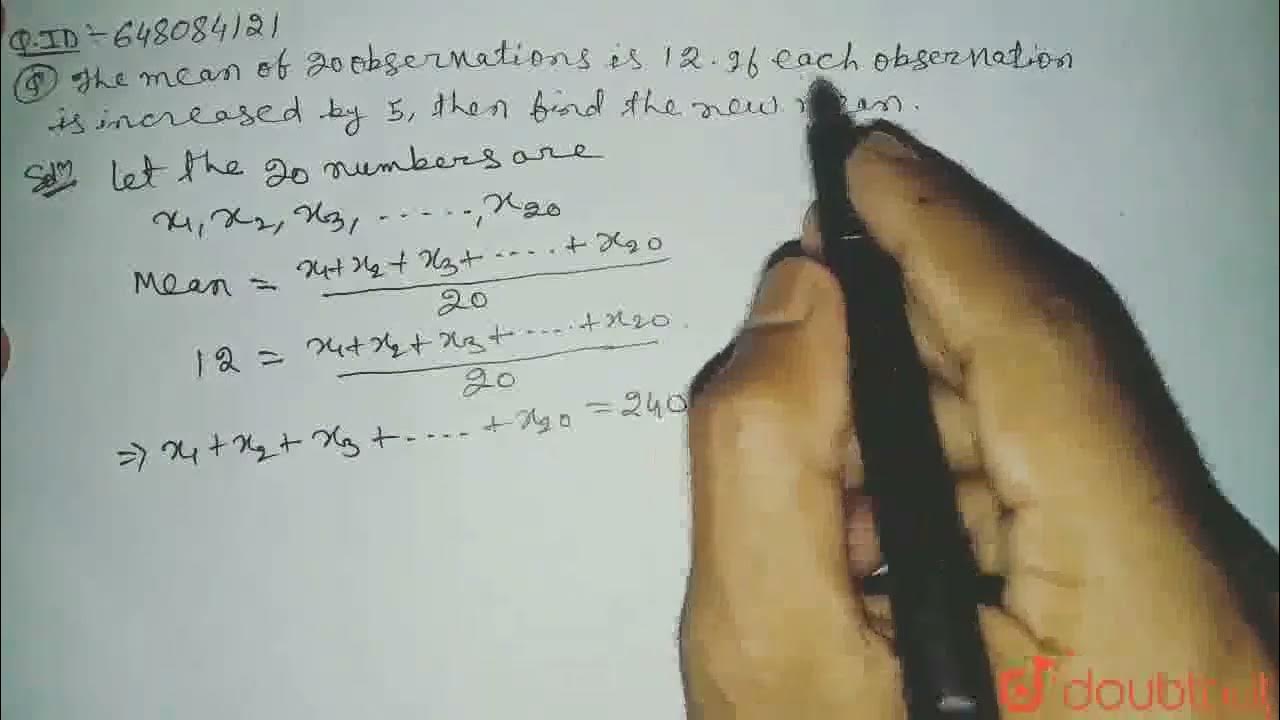 Q.ID :- 648084121
Q The mean of 20 observations is 12. If each observation
is increased by 5, then find the new mean.
Solⁿ Let the 20 numbers are
x₁, x₂, x₃, ......, x₂₀
Mean = x₁+x₂+x₃+.....+x₂₀
20
12 = x₁+x₂+x₃+.....+x₂₀
20
⇒ x₁+x₂+x₃+.....+x₂₀ = 240
doubtnut